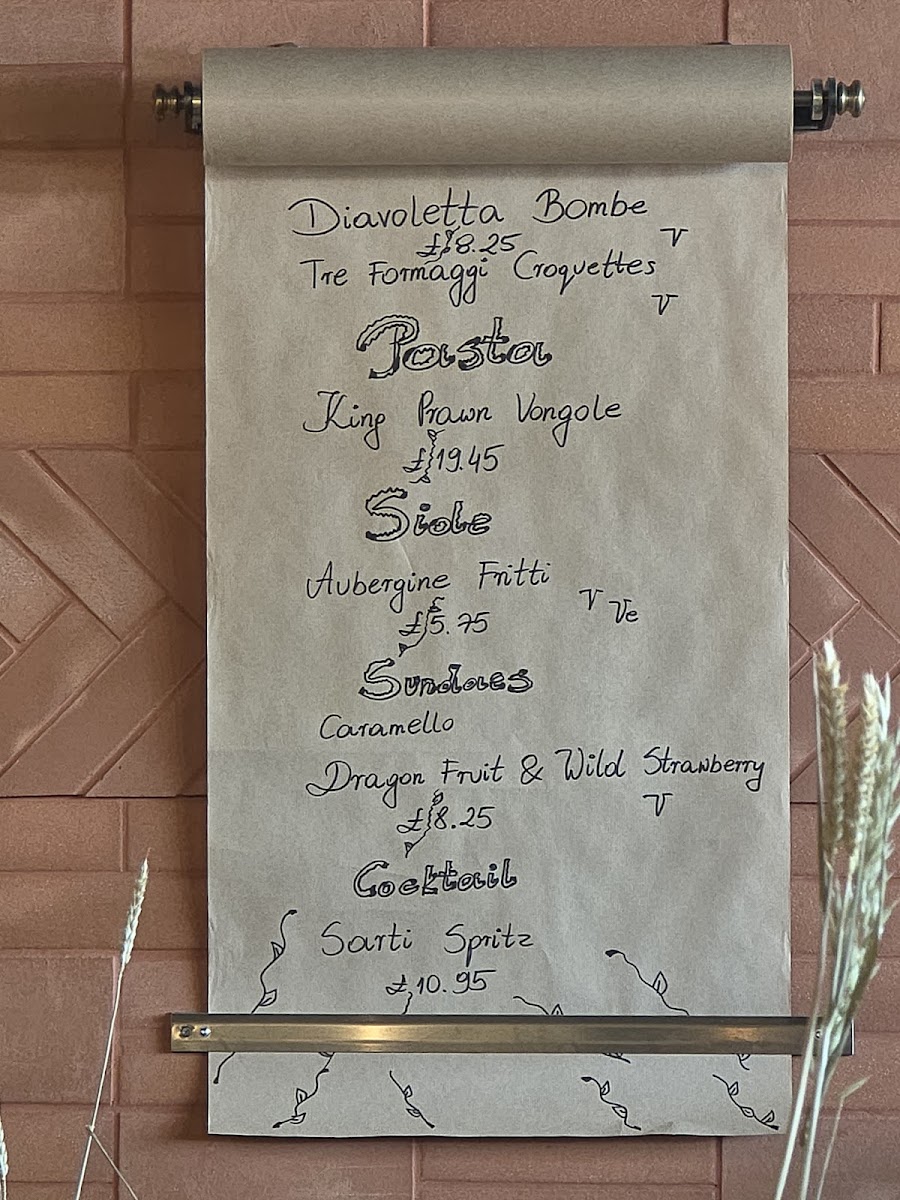 Diavoletta Bombe
£8.25 V
Tre Formaggi Croquettes
V
Pasta
King Prawn Vongole
£19.45
Side
Aubergine Fritti
V Ve
£5.75
Sundaes
Caramello
Dragon Fruit & Wild Strawberry
V
£8.25
Cocktail
Sarti Spritz
£10.95